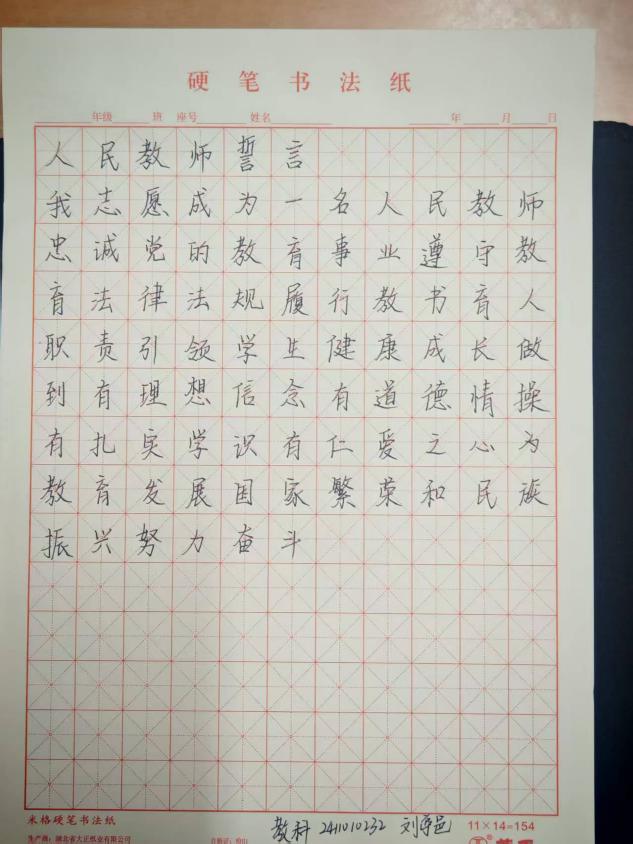 硬笔书法纸
年级 班 座号 姓名 年 月 日
人民教师誓言
我志愿成为一名人民教师
忠诚党的教育事业遵守教
育法律法规履行教书育人
职责引领学生健康成长做
到有理想信念有道德情操
有扎实学识有仁爱之心为
教育发展国家繁荣和民族
振兴努力奋斗
米格硬笔书法纸
11×14=154
教科 2411010232 刘
生产商：湖北省大正纸业有限公司